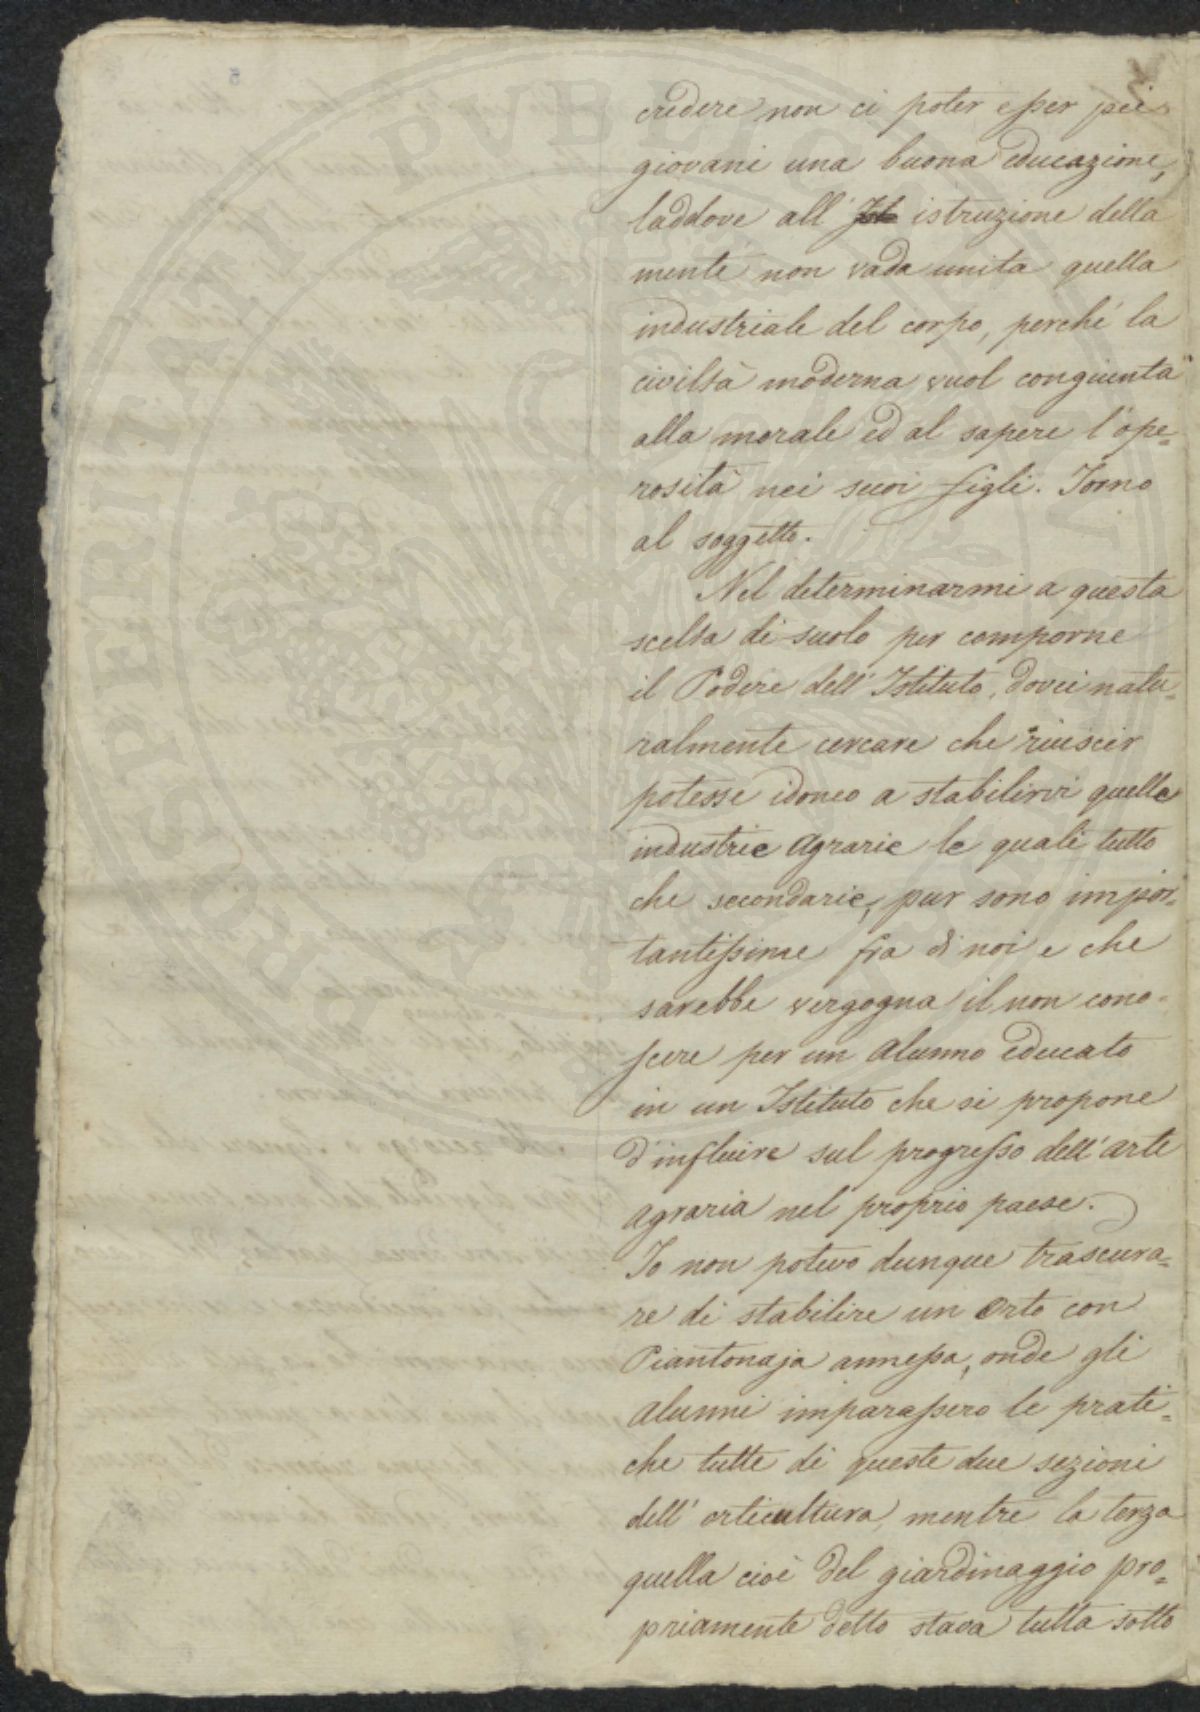 credere non ci poter esser pei
giovani una buona educazione,
laddove all' istruzione della
mente non vada unita quella
industriale del corpo, perché la
civiltà moderna vuol congiunta
alla morale ed al sapere l'ope=
rosità nei suoi figli. Torno
al soggetto.
Nel determinarmi a questa
scelta di suolo per comporne
il Podere dell' Istituto, dovei natu=
ralmente cercare che riuscir
potesse idoneo a stabilirvi quelle
industrie agrarie le quali tutto
che secondarie, pur sono impor=
tantissime fra di noi e che
sarebbe vergogna il non cono=
scere per un alunno educato
in un Istituto che si propone
d'influire sul progresso dell' arte
agraria nel proprio paese.
Io non potevo dunque trascura=
re di stabilire un Orto con
Piantonaja annessa, onde gli
alunni imparassero le prati=
che tutte di queste due sezioni
dell' orticultura, mentre la terza
quella cioè del giardinaggio pro=
priamente detto stava tutta sotto